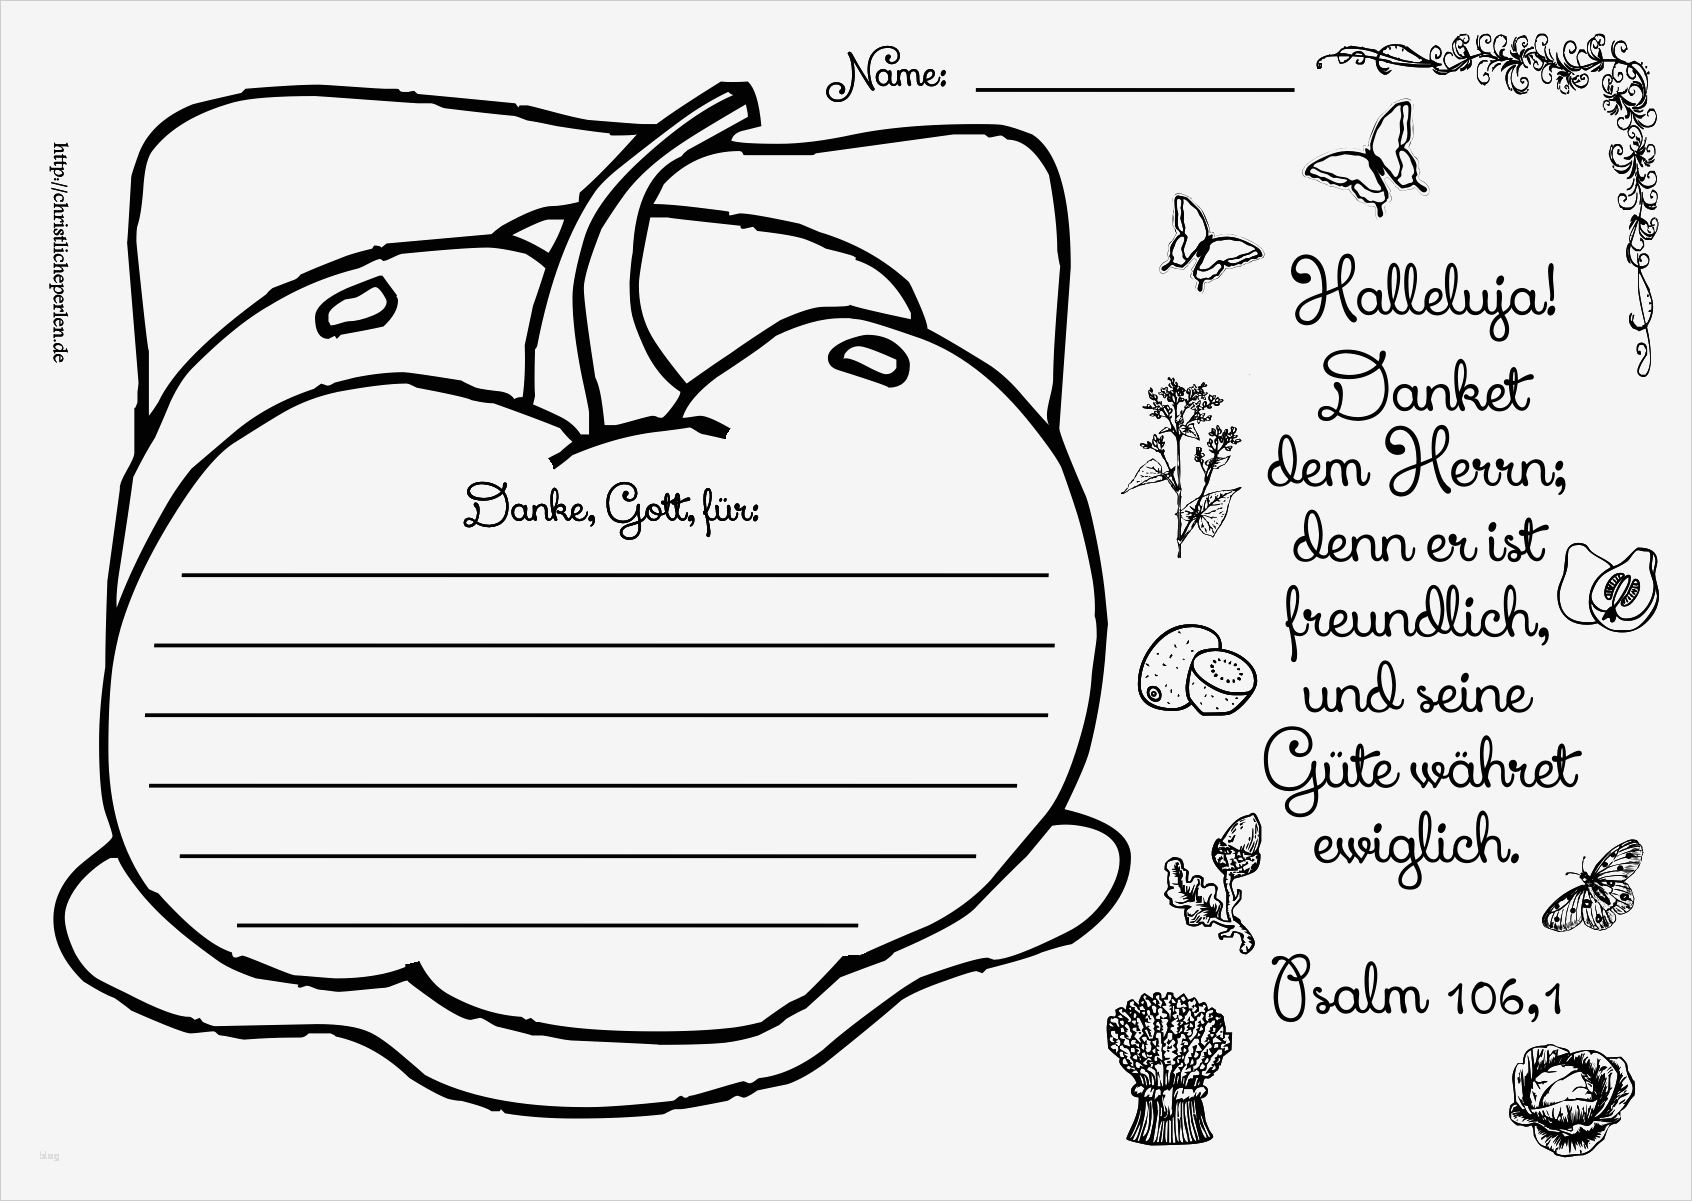 Name:
http://christlicheperlen.de
Danke, Gott, für:
Halleluja!
Danket
dem Herrn;
denn er ist
freundlich,
und seine
Güte währet
ewiglich.
Psalm 106,1
blog